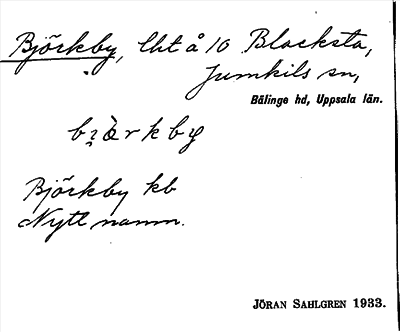 Björkby, lht å 10 Blacksta,
Jumkils sn,
Bälinge hd, Uppsala län.
Björkby kb
Nytt namn.
JÖRAN SAHLGREN 1933.